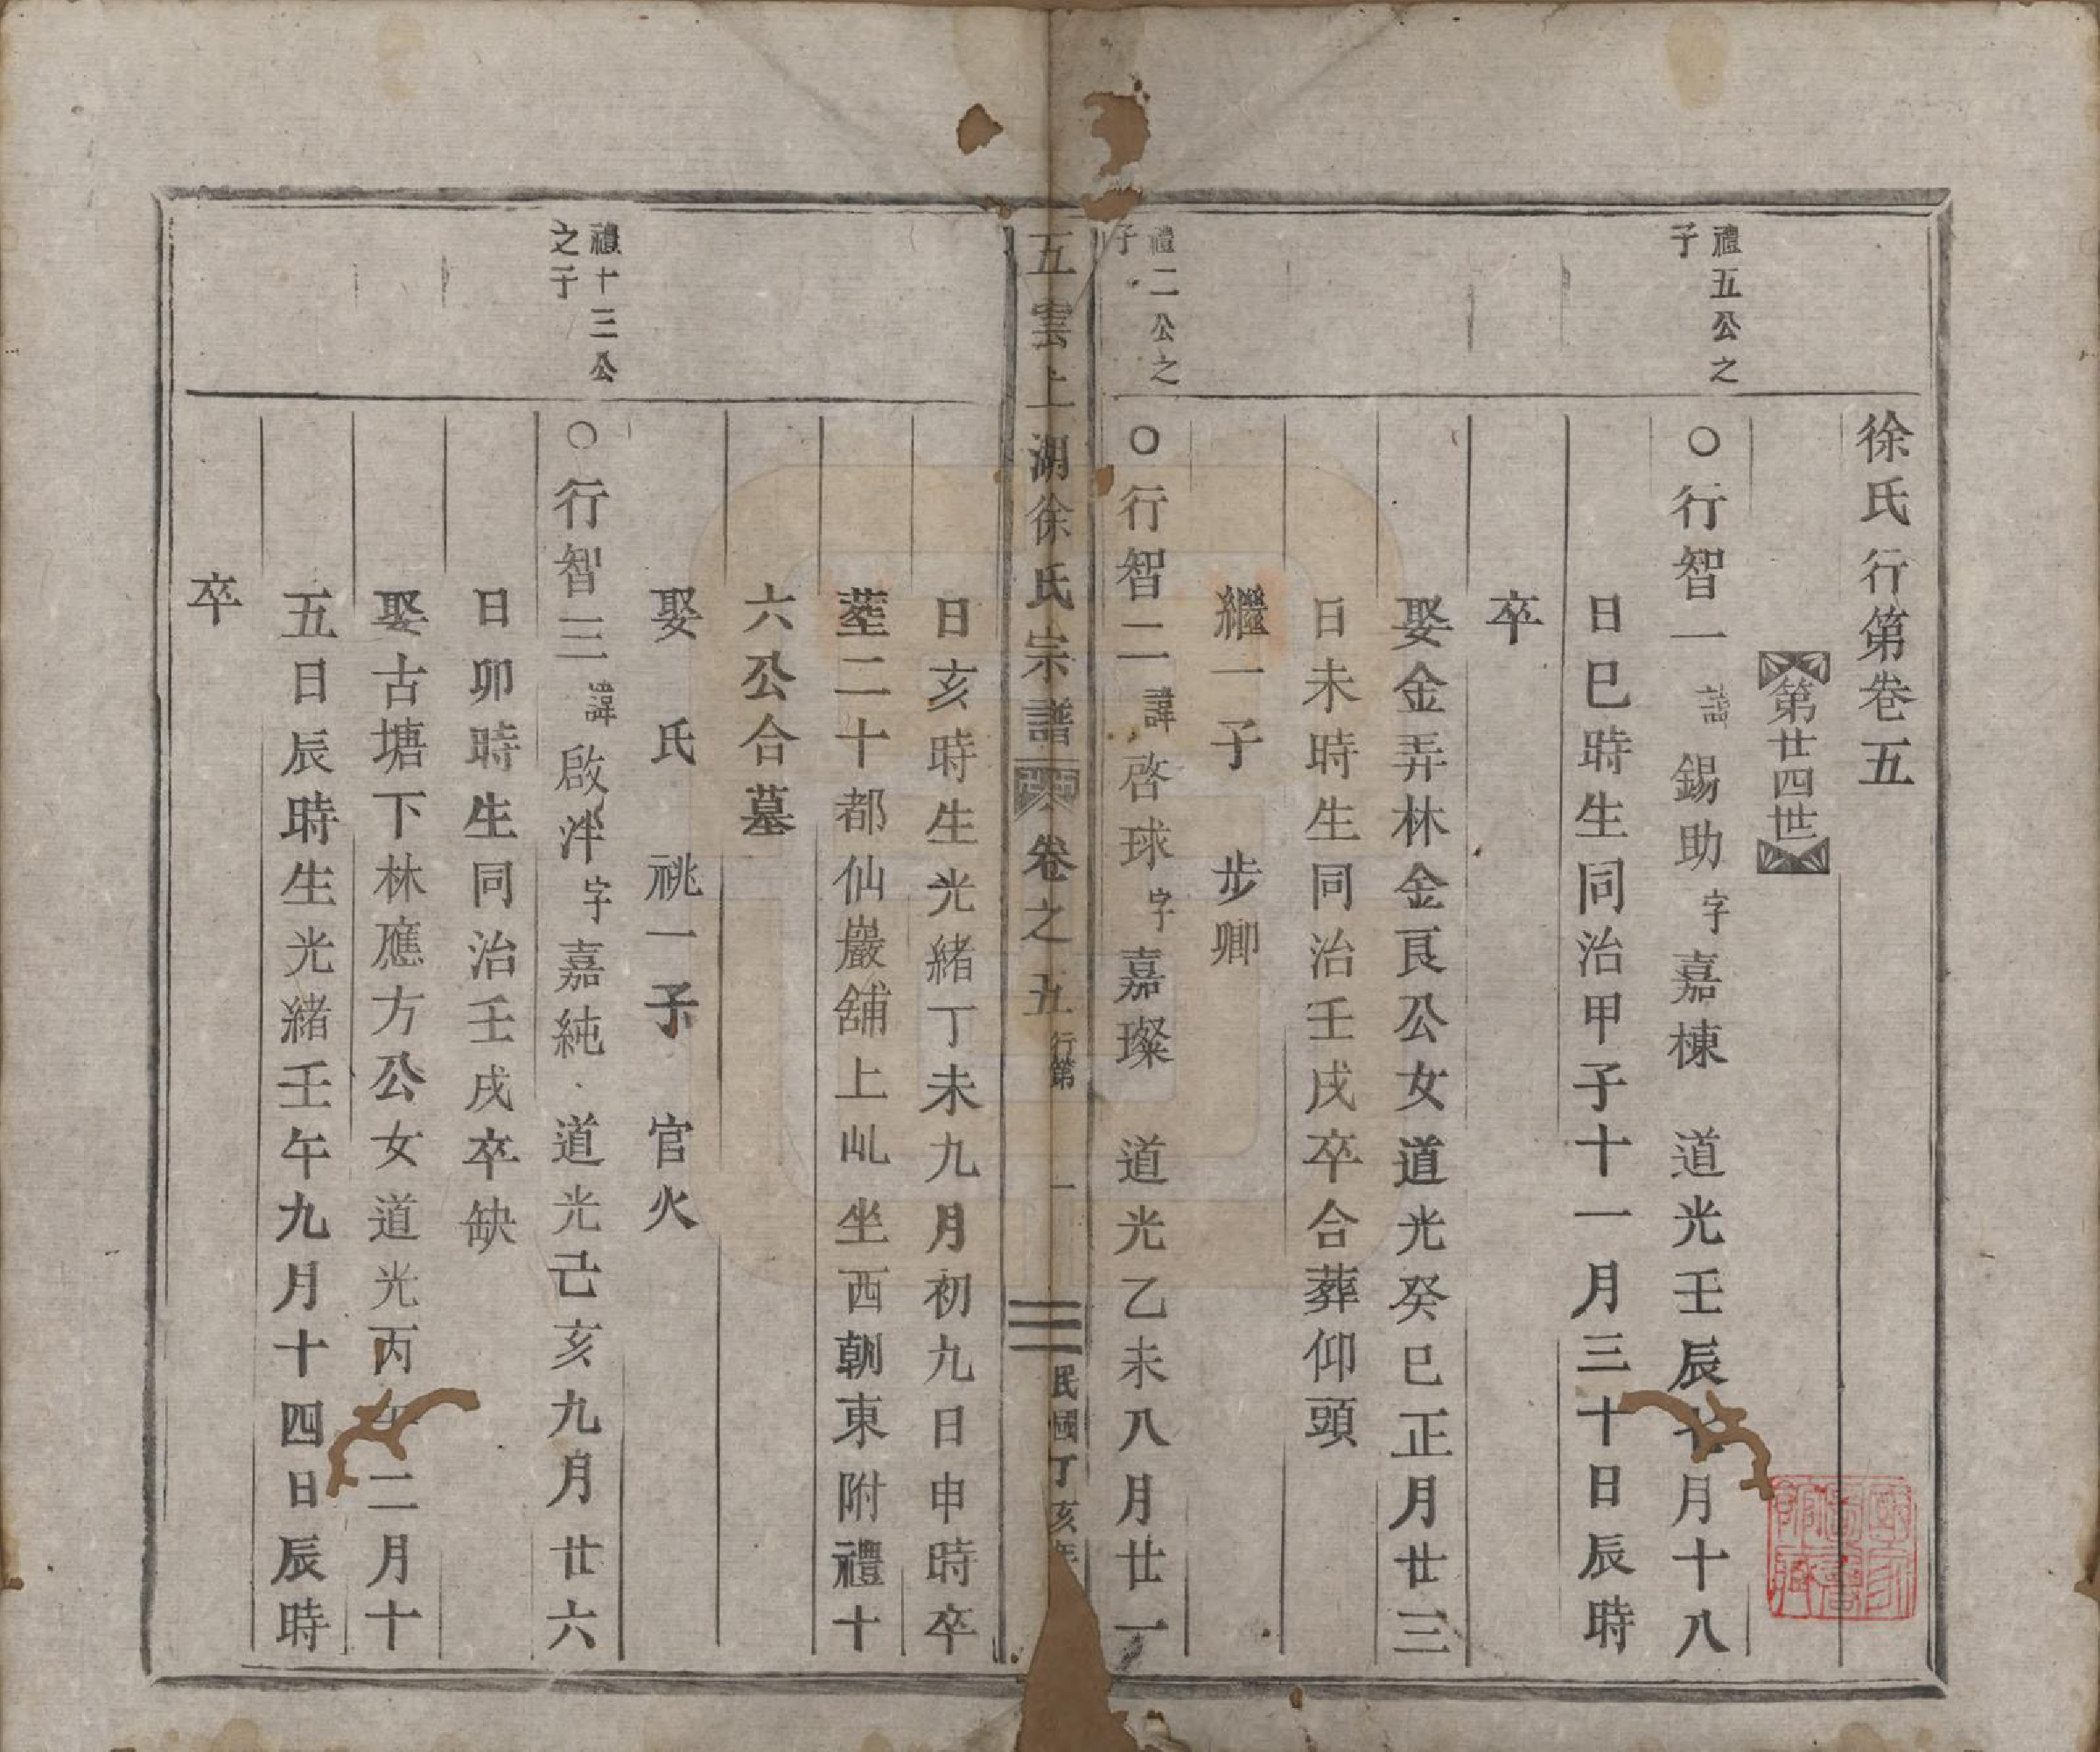 徐氏行第卷五
第廿四世
禮五公之
子
○行智一諱錫助字嘉棟 道光壬辰 月十八
日巳時生同治甲子十一月三十日辰時
卒
娶金弄林金艮公女道光癸巳正月廿三
日未時生同治壬戌卒合葬仰頭
繼一子 步卿
禮二公之
子
○行智二諱啓球字嘉璨 道光乙未八月廿一
五雲上湖徐氏宗譜 卷之五 行第 一 民國丁亥年
日亥時生光緒丁未九月初九日申時卒
塟二十都仙巖舖上乢坐西朝東附禮十
六公合墓
娶 氏 祧一子 官火
禮十三公
之子
○行智三諱啟泮字嘉純 道光己亥九月廿六
日卯時生同治壬戌卒缺
娶古塘下林應方公女道光丙午二月十
五日辰時生光緒壬午九月十四日辰時
卒